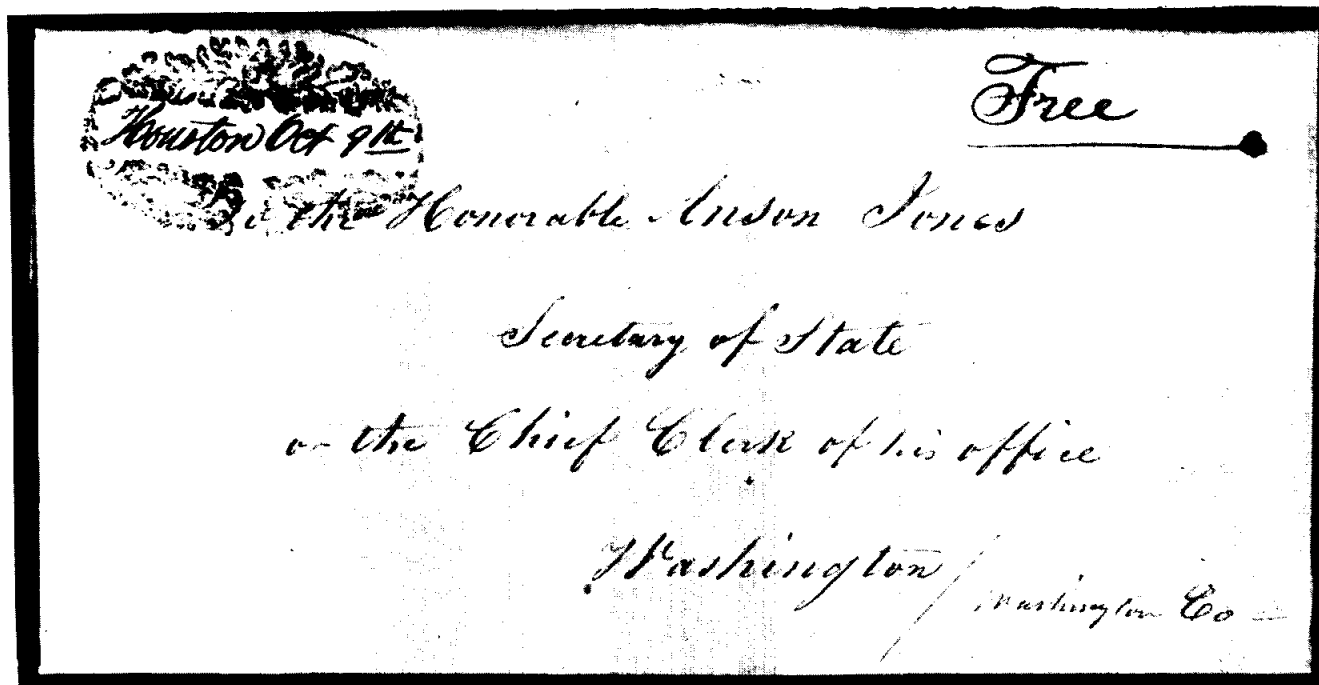 Free
Houston Oct 9th
To the Honorable Anson Jones
Secretary of State
or the Chief Clerk of his office
Washington / Washington Co